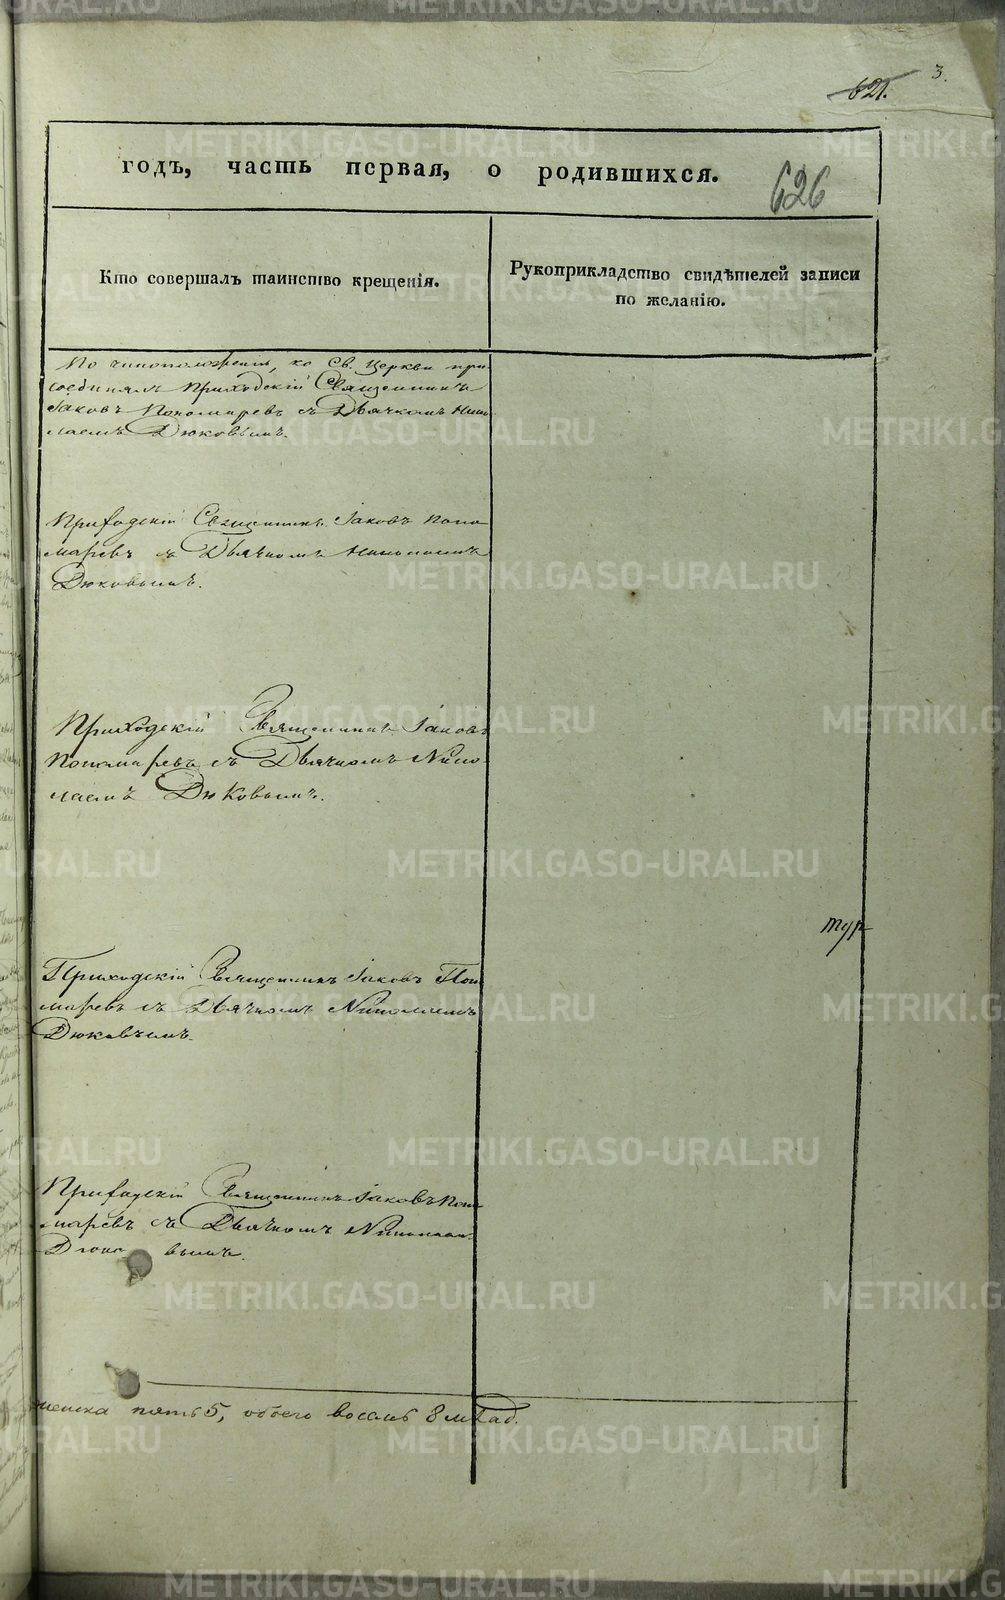 3.
621.
годъ, часть первая, о родившихся.
626
Кто совершалъ таинство крещенія.
Рукоприкладство свидѣтелей записи
по желанію.
По чиноположенію, ко Св. Церкви при-
соединялъ Приходскій Священникъ
Іаковъ Пономаревъ съ Дьячкомъ Нико
лаемъ Дюковымъ.
Приходскій Священникъ Іаковъ Поно
маревъ съ Дьячкомъ Николаемъ
Дюковымъ.
Приходскій Священникъ Іаковъ
Пономаревъ съ Дьячкомъ Нико-
лаемъ Дюковымъ.
Приходскій Священникъ Іаковъ Поно
маревъ съ Дьячкомъ Николаемъ
Дюковымъ.
Приходскій Священникъ Іаковъ Поно
маревъ съ Дьячкомъ Николаемъ
Дюко вымъ.
женска пять 5, обоего восемь 8 млад.
METRIKI.GASO-URAL.RU